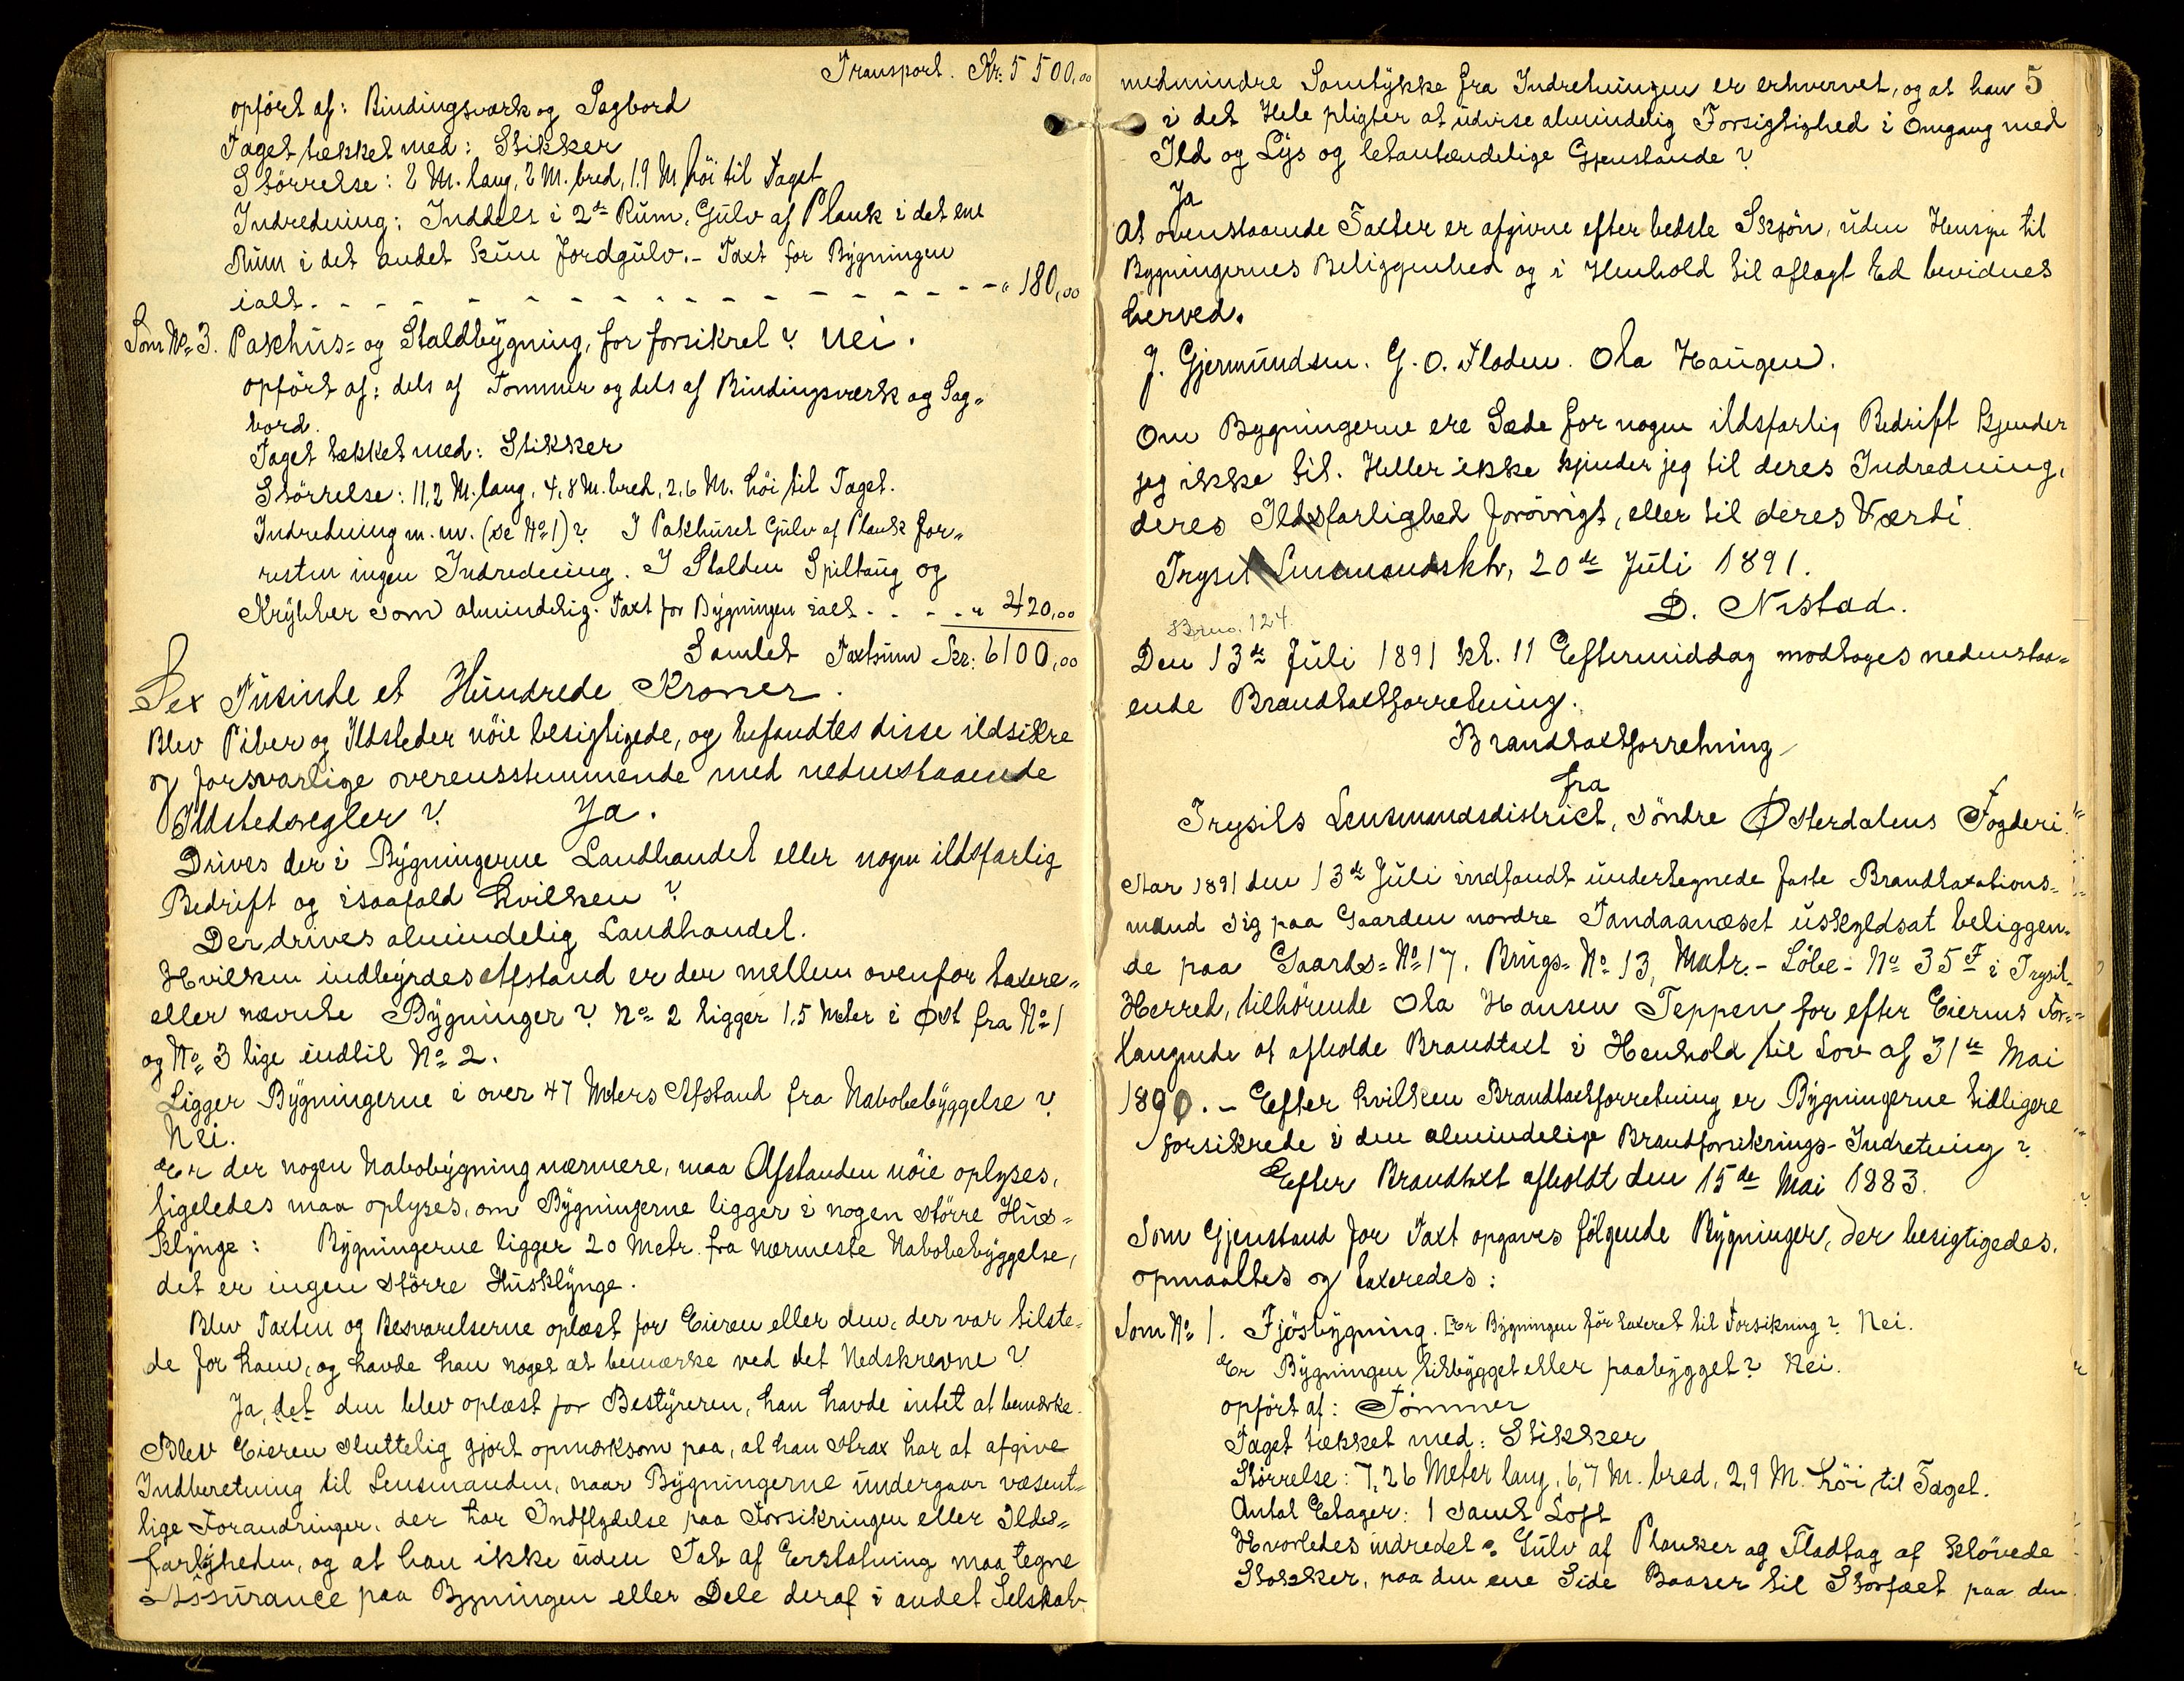 Transport. Kr: 5 500,00
opført af: Bindingsværk og Sagbord
Taget tækket med: Stikker
Størrelse: 2 M. lang, 2 M. bred, 1.9 M høi til Taget
Indredning: Inddelt i 2de Rum, Gulv af Plank i det ene
Rum i det andet kun Jordgulv. - Taxt for Bygningen
ialt - - - - - - - - - - - - - - - - „ 180,00
Som No 3. Pakhus= og Staldbygning, før forsikret? Nei.
opført af: dels af Tømmer og dels af Bindingsværk og Sag„
bord.
Taget tækket med: Stikker
Størrelse: 11,2 M. lang, 4,8 M. bred, 2,6 M. høi til Taget.
Indredning m. m. (se No 1)? I Pakhuset Gulv af Plank for„
resten ingen Indredning. I Stalden Spiltaug og
Krybber som almindelig. Taxt for Bygningen ialt - - - „ 420,00
Samlet Taxtsum Kr: 6100,00
Sex Tusinde et Hundrede Kroner.
Blev Piber og Ildsteder nøie besigtigede, og befandtes disse ildsikre
og forsvarlige overensstemmende med nedenstaaende
Ildstedsregler? Ja.
Drives der i Bygningerne Landhandel eller nogen ildsfarlig
Bedrift og isaafald hvilken?
Der drives almindelig Landhandel.
Hvilken indbyrdes Afstand er der mellem ovenfor taxere„
eller nævnte Bygninger? No 2 ligger 1,5 Meter i Øst fra No 1
og No 3 lige indtil No 2.
Ligger Bygningerne i over 47 Meters Afstand fra Nabobebyggelse?
Nei.
Er der nogen Nabobygning nærmere, maa Afstanden nøie oplyses,
ligeledes maa oplyses, om Bygningerne ligger i nogen større Hus=
klynge: Bygningerne ligger 20 Metr. fra nærmeste Nabobebyggelse,
det er ingen større Husklynge.
Blev Taxten og Besvarelserne oplæst for Eieren eller den, der var tilste=
de for ham, og havde han noget at bemærke ved det Nedskrevne?
Ja, det den blev oplæst for Bestyreren, han havde intet at bemærke.
Blev Eieren sluttelig gjort opmærksom paa, at han strax har at afgive
Indberetning til Lensmanden, naar Bygningerne undergaar væsent=
lige Forandringer, der har Indflydelse paa Forsikringen eller Ilds=
farligheden, og at han ikke uden Tab af Erstatning maa tegne
Assurance paa Bygningen eller Dele deraf i andet Selskab
5
medmindre Samtykke fra Indretningen er erhvervet, og at han
i det Hele pligter at udvise almindelig Forsigtighed i Omgang med
Ild og Lys og letantændelige Gjenstande?
Ja
At ovenstaaende Taxter er afgivne efter bedste Skjøn, uden Hensyn til
Bygningernes Beliggenhed og i Henhold til aflagt Ed bevidnes
herved.
J. Gjermundsen. G. O. Floden. Ola Haugen.
Om Bygningerne ere Sæde for nogen ildsfarlig Bedrift kjender
jeg ikke til. Heller ikke kjender jeg til deres Indredning,
deres Ildsfarlighed forøvrigt, eller til deres Værdi.
Trysil Lensmandsktr, 20de Juli 1891.
D. Nistad.
Brno. 124.
Den 13de Juli 1891 kl. 11 Eftermiddag modtages nedenstaa=
ende Brandtaxtforretning.
Brandtaxtforretning
fra
Trysils Lensmandsdistrict, søndre Østerdalens Fogderi.
Aar 1891 den 13de Juli indfandt undertegnede faste Brandtaxations=
mænd sig paa Gaarden nordre Tandaanæset uskyldsat beliggen=
de paa Gaards=No 17. Brugs=No 13, Matr.-Løbe-No 35F i Trysil
Herred, tilhørende Ola Hansen Teppen for efter Eierens For=
langende at afholde Brandtaxt i Henhold til Lov af 31te Mai
1890. - Efter hvilken Brandtaxtforretning er Bygningerne tidligere
forsikrede i den almindelige Brandforsikrings-Indretning?
Efter Brandtaxt afholdt den 15de Mai 1883.
Som Gjenstand for Taxt opgaves følgende Bygninger, der besigtigedes,
opmaaltes og taxeredes:
Som No 1. Fjøsbygning. Er Bygningen før taxeret til Forsikring? Nei.
Er Bygningen tilbygget eller paabygget? Nei.
opført af: Tømmer
Taget tækket med: Stikker
Størrelse: 7,26 Meter lang, 6,7 M. bred, 2,9 M. høi til Taget.
Antal Etager: 1 samt Loft
Hvorledes indredet: Gulv af Planker og Fladtag af kløvede
Stokker, paa den ene Side Baaser til Storfæet paa den